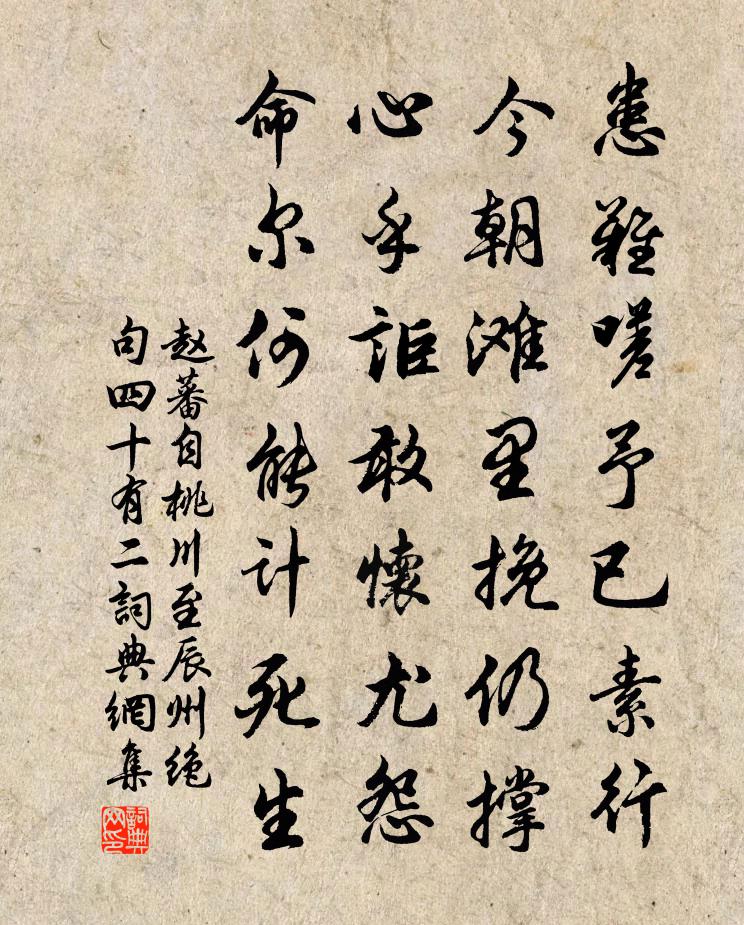 患難嗟予已素行
今朝滩里挽仍撑
心乎詎敢懷尤怨
命尔何能計死生
赵蕃自桃川至辰州绝
句四十有二詞典網集
詞典网印